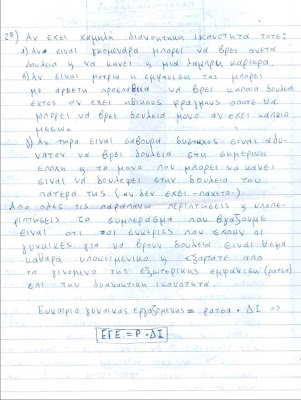 2º) Αν εχει χαμηλη διανοητικη ικανοτητα τοτε:
α) Αν ειναι γκομεναρα μπορει να βρει ανετα
δουλεια η να κανει η μια λαμπρη καριερα.
β) Αν ειναι μετρια η εμφανιση της μπορει
με αρκετη προσπαθεια να βρει καποια δουλεια
εκτος αν εχει ηθικους φραγμους οποτε θα
μπορει να βρει δουλεια μονο αν εχει καποιο
μεσων.
γ) Αν τωρα ειναι σαβουρα δυστυχως ειναι αδυ-
νατον να βρει δουλεια στη σημερινη
εποχη η το μονο που μπορει να κανει
ειναι να δουλεψει στην δουλεια του
πατερα της (αν δεν εχει -πακετο-)
Απο ολες τις παραπανω περιπτωσεις η υποπε-
ριπτωσεις το συμπερασμα που βγαζουμε
ειναι οτι οι ευκιριες που εχους οι
γυναικες για να βρουν δουλεια ειναι θεμα
καθαρα υποκειμενικο η εξαρταται απο
το γινομενο της εξωτερικης εμφανισης (ρατσα)
επι την διανοητικη ικανοτητα.
Ευκαιρια γυναικας εργαζομενης = ρατσα · ΔΙ =>
ΕΓΕ = Ρ · ΔΙ